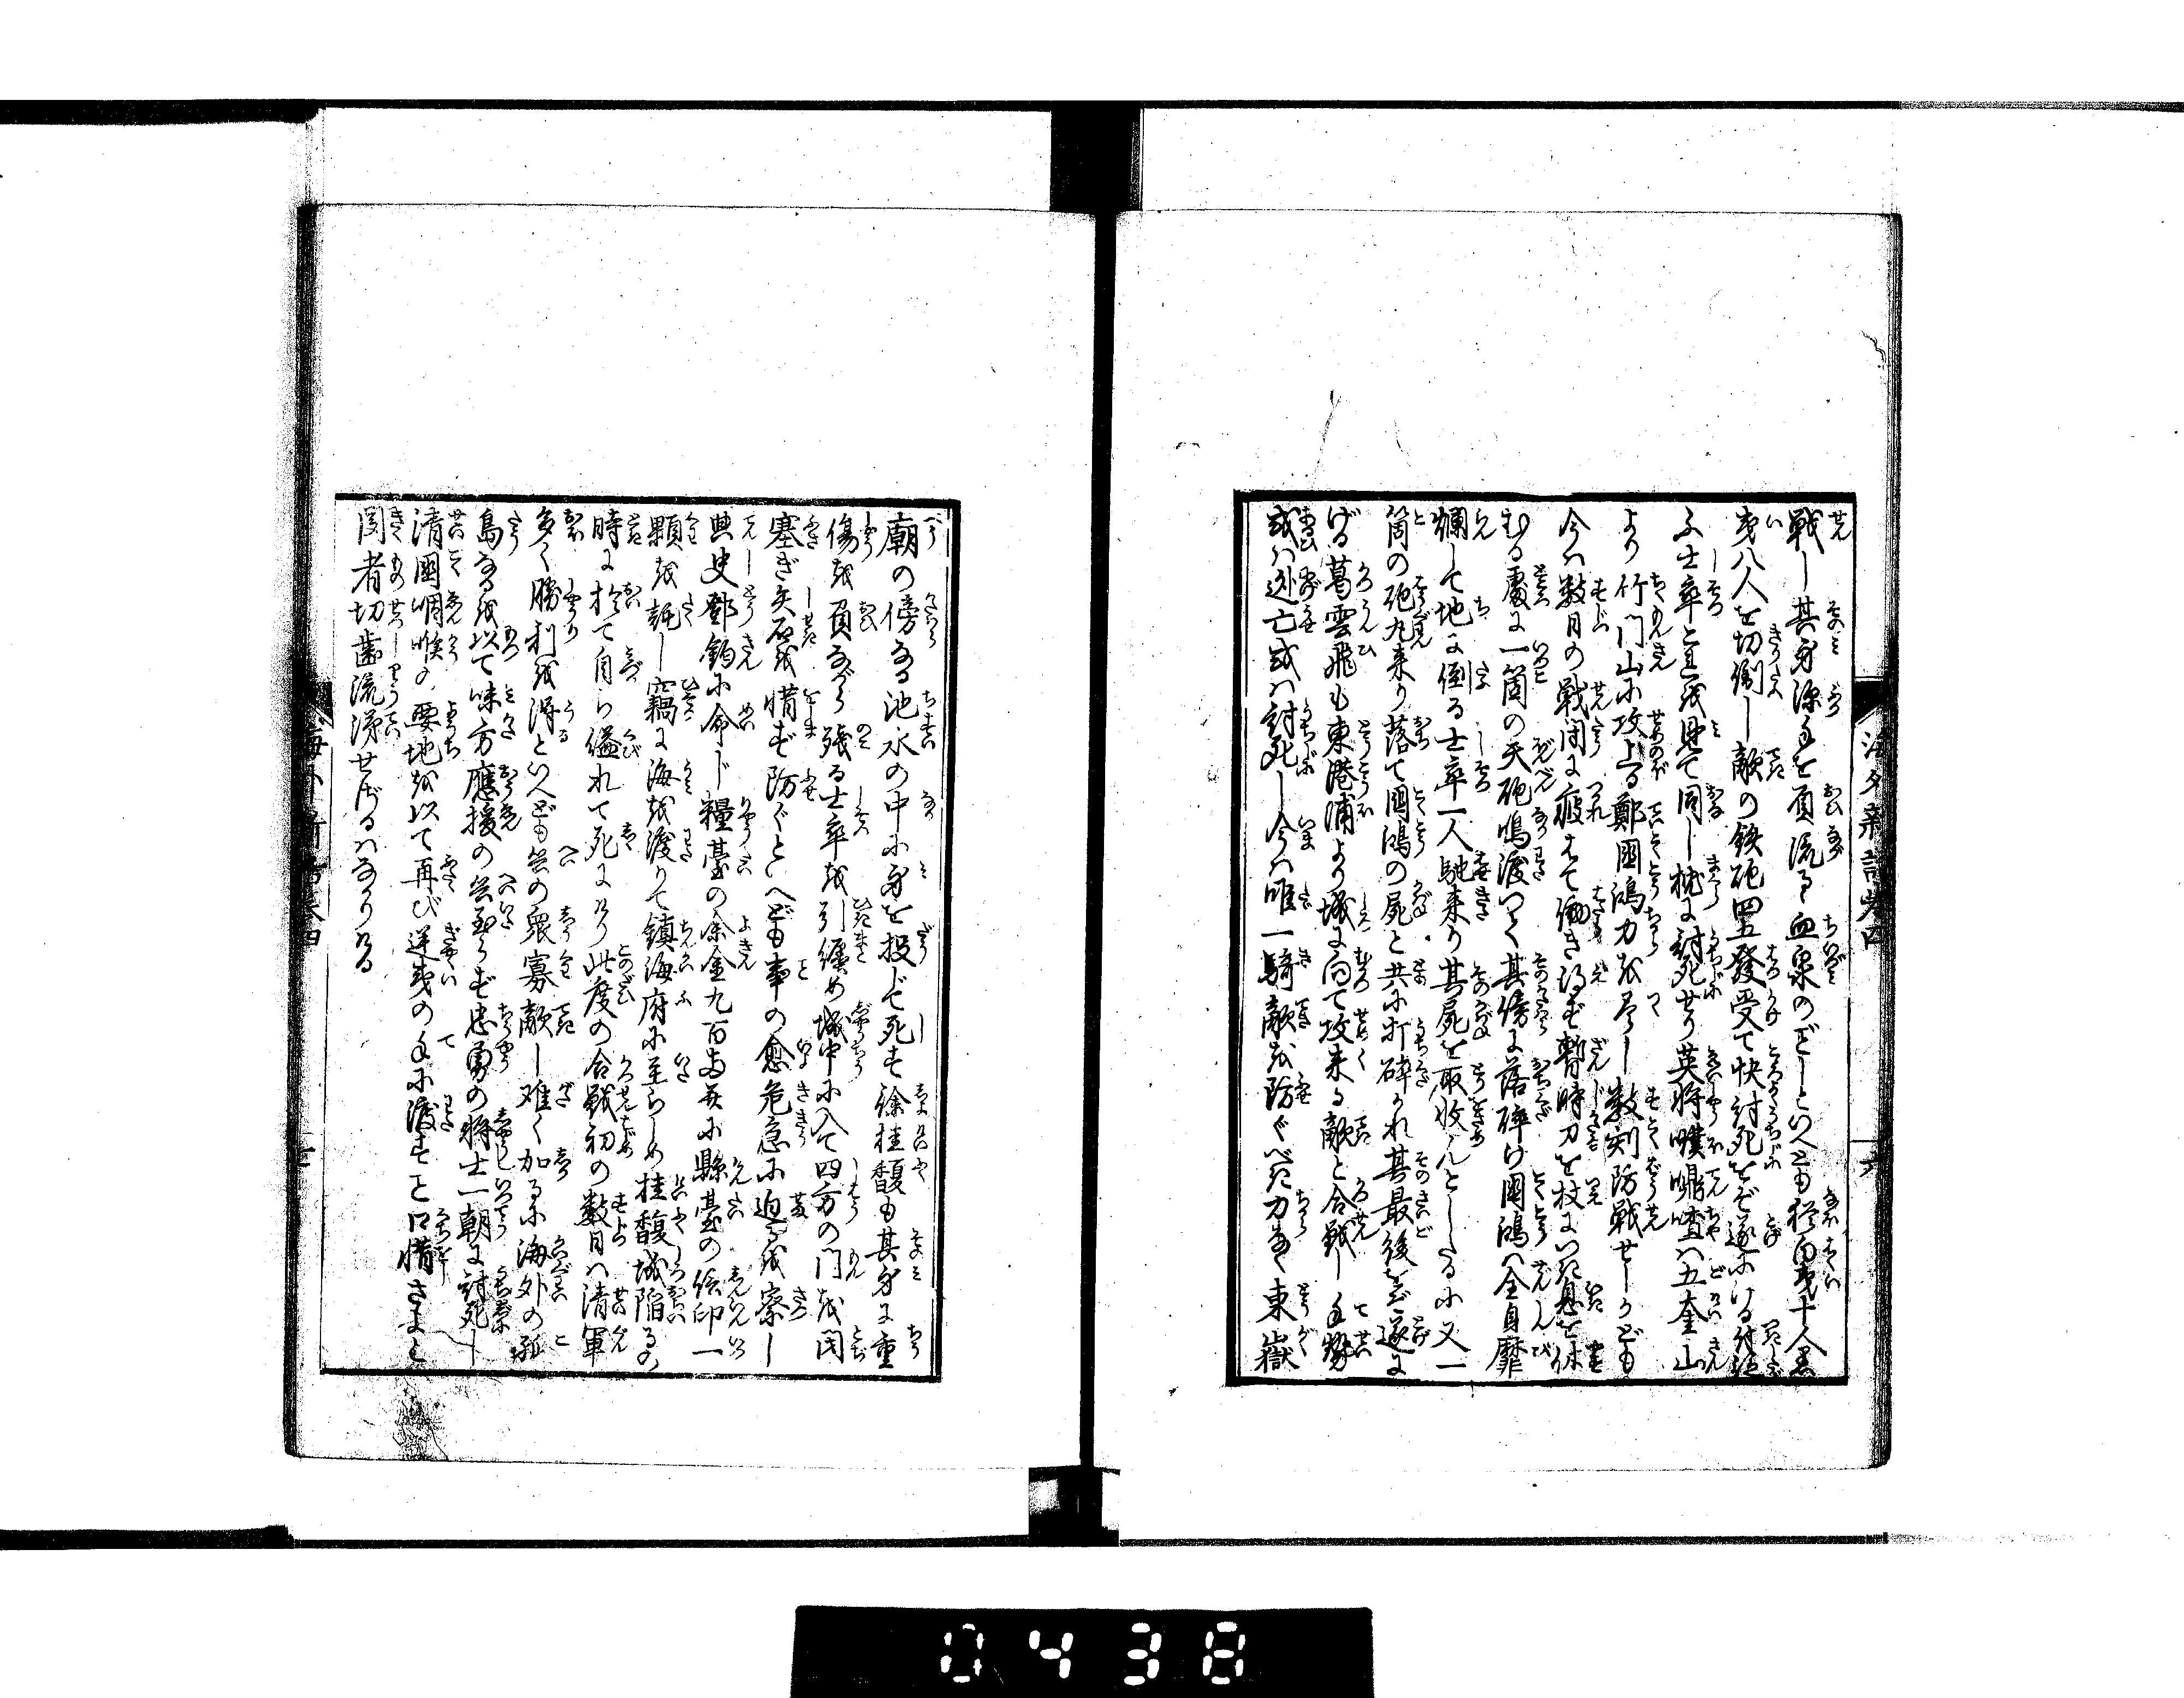 戦し其身深手を負流るゝ血泉のごしといへども猶白夷十人黒
夷八人を切倒し敵の鉄砲四五發受て快討死をぞ遂にける付従
ふ士卒も是を見て同し枕に討死せり英将㗣噗嚊喳ハ五奎山
より竹门山に攻上る鄭國鴻力を尽し數刻防戦せしかども
今ハ数日の戦闘に疲はて働き得ず暫時刀を杖にいき息を休
むる處に一箇の天砲鳴渡つく其傍に落碎け國鴻ハ全身靡
爛して地に倒る士卒一人馳来り其屍を取收んとしたるに又一
箇の砲丸来り落て國鴻の屍と共に打碎かれ其最後をぞ遂に
げる葛雲飛も東港浦より城に向て攻来る敵と合戦し手勢
或ハ迯亡或ハ討死し今ハ唯一騎敵を防ぐべき力なく東嶽
廟の傍なる池水の中に身を投じて死す徐桂馥も其身に重
傷を負ながら殘る士卒を引纒め城中に入て四方の门を闭
塞ぎ矢石を惜まず防ぐといへども事の愈危急に迫るを察し
典史鄧鈞に命じ糧臺の余金九百両并に縣臺の絵印一
顆を託し竊に海を渡りて鎮海府に至らしめ桂馥城陥るの
時に於て自ら縊れて死にけり此度の合戦初の数日ハ清軍
多く勝利を得といへども兵の衆寡敵し難く加るに海外の孤
島なるを以て味方應援の兵至らず忠勇の将士一朝に討死し
清國咽喉の要地を以て再び逆夷の手に渡すこと口惜さよと
聞者切齒流涕せざるハなかりける
海外新話巻四
六
0438